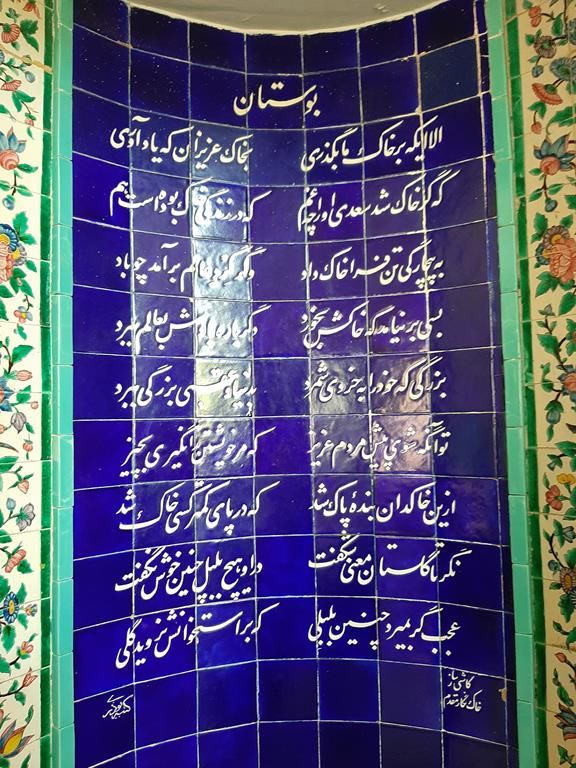 بوستان
الا ایکه بر خاک ما بگذری بخاک عزیزان که یاد آوری
که گر خاک شد سعدی او را چه غم که در زندگی خاک بوده است هم
به بیچارگی تن فرا خاک داد وگر گرد عالم برآمد چو باد
بسی برنیامد که خاکش بخورد دگر باره بادش بعالم ببرد
بزرگی که خود را به خردی شمرد بدنیا و عقبی بزرگی ببرد
تو آنگه شوی پیش مردم عزیز که مر خویشتن را نگیری بچیز
ازین خاکدان بندهٔ پاک شد که در پای کمتر کسی خاک شد
نگر تا گلستان معنی شکفت در او هیچ بلبل چنین خوش نگفت
عجب گر بمیرد چنین بلبلی که بر استخوانش نروید گلی
کاشی ساز
خاک نگار مقدم